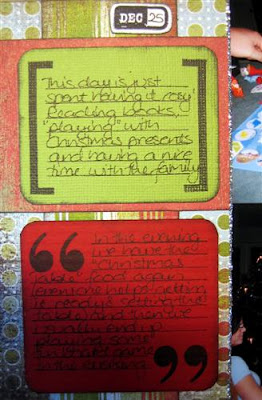 DEC 25
This day is just
spent having it cozy!
Reading books,
"playing" with
Christmas presents
and having a nice
time with the family
In the evening
we have the
Christmas
food again
(everyone helps
setting the
table) and then we
usually end up
playing some
game
in the evening